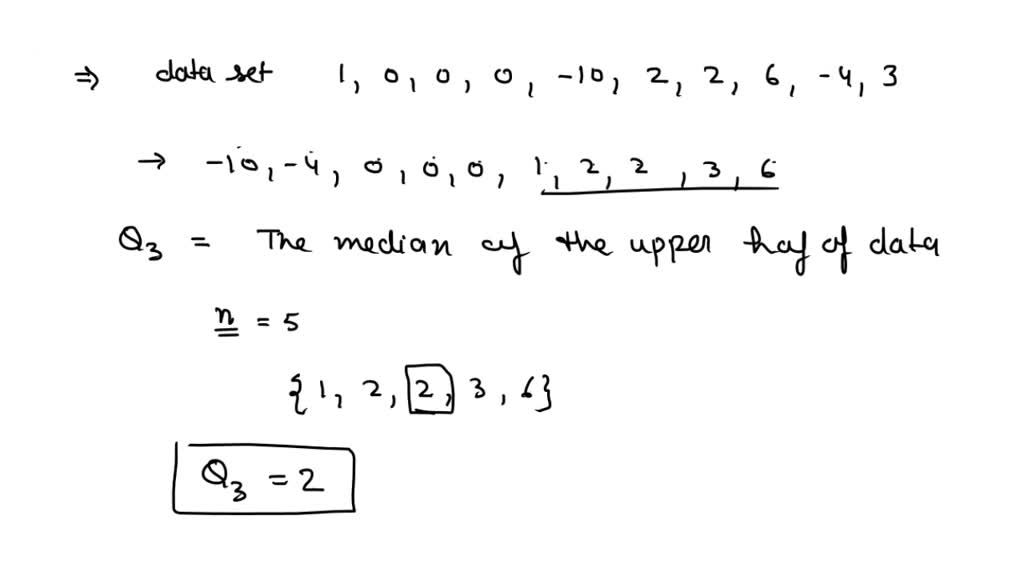 ⇒ data set 1, 0, 0, 0, -10, 2, 2, 6, -4, 3
→ -10, -4, 0, 0, 0, 1, 2, 2, 3, 6
Q₃ = The median of the upper haf of data
n = 5
{1, 2, 2, 3, 6}
Q₃ = 2